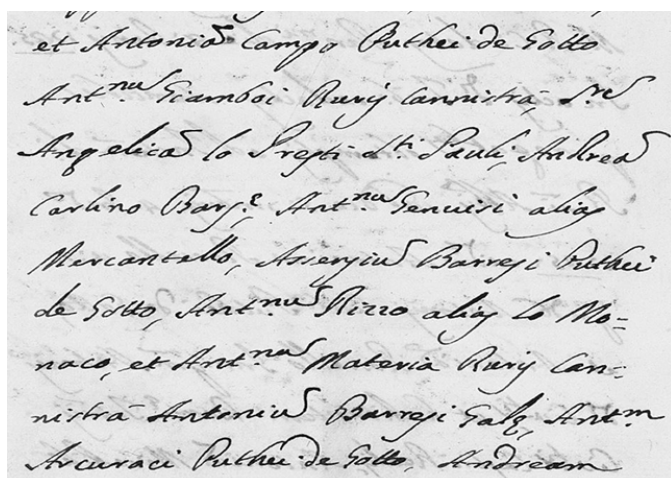 et Antonia Campo Puthei de Gotto
Ant.nu Giamboi Rurij Cannistrà,
Angelica lo Presti d.ti Pauli, Andrea
Carlino Ant.nu Genuisi alias
Mercantello, Assenziu Barresi Puthei
de Gotto, Ant.nu Rizzo alias lo Mo=
naco, et Ant.na Materia Rurij Can=
nistrà Antoniu Barresi Ant.m
Arcuraci Puthei de Gotto, Andream